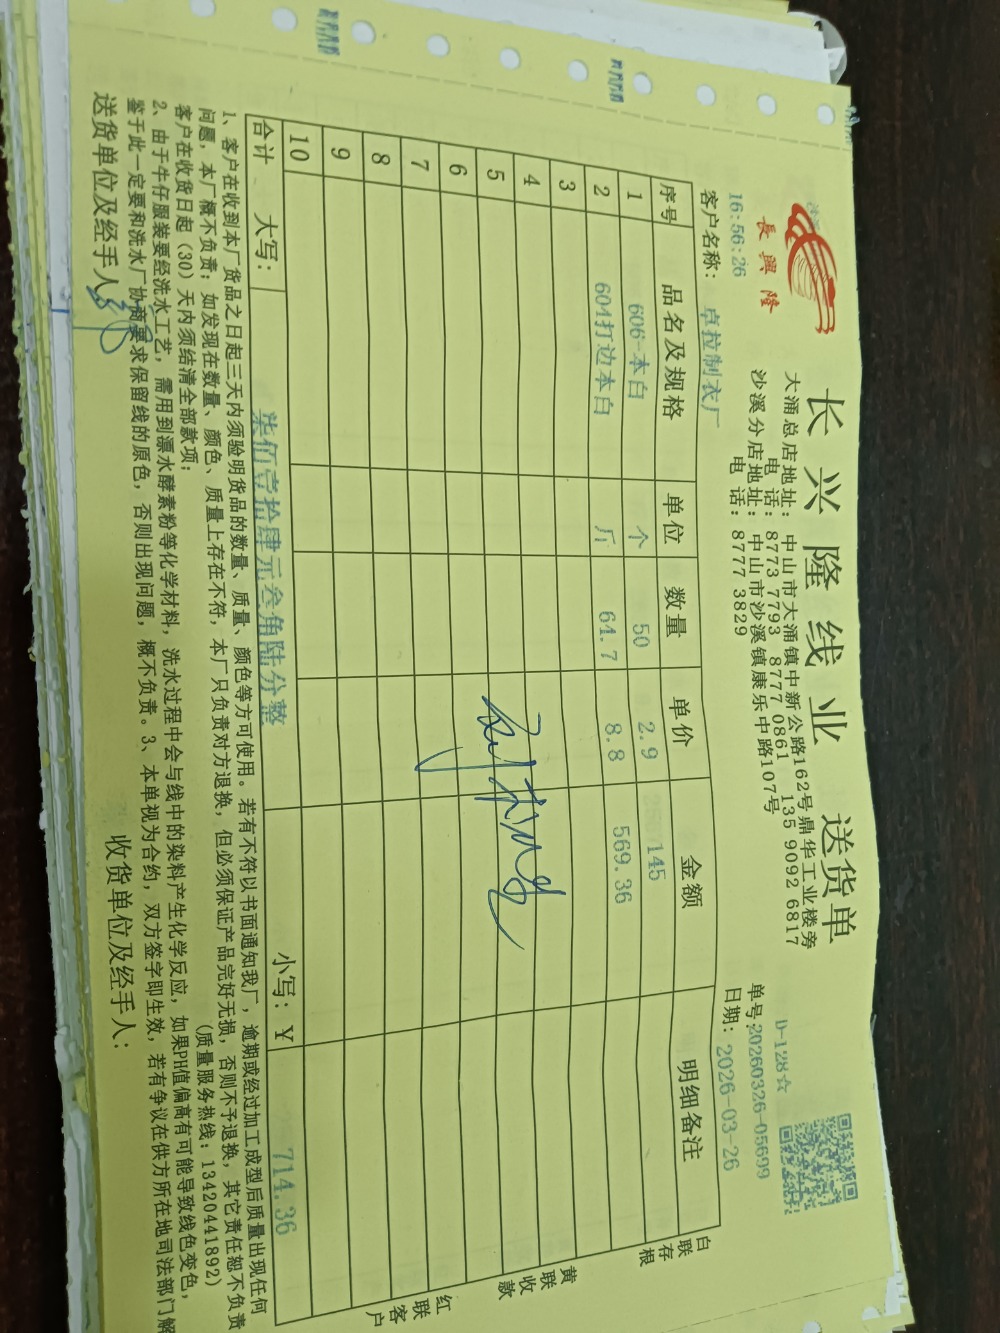 長興隆
长兴隆线业 送货单
大涌总店地址: 中山市大涌镇中新公路162号鼎华工业楼旁
电 话: 8773 7793 8777 0861 135 9092 6817
沙溪分店地址: 中山市沙溪镇康乐中路107号
电 话: 8777 3829
D-128☆
16:56:26
单号: 20260326-05699
客户名称: 卓拉制衣厂 日期: 2026-03-26
序号 品名及规格 单位 数量 单价 金额 明细备注
1 606-本白 个 50 2.9 145
2 604打边本白 斤 64.7 8.8 569.36
3
4
5
6
7
8
9
10
合计 大写: 柒佰壹拾肆元叁角陆分整 小写: ¥ 714.36
白联存根
黄联收款
红联客户
1、客户在收到本厂货品之日起三天内须验明货品的数量、质量、颜色等方可使用。若有不符以书面通知我厂，逾期或经过加工成型后质量出现任何
问题，本厂概不负责；如发现在数量、颜色、质量上存在不符，本厂只负责对方退换，但必须保证产品完好无损，否则不予退换，其它责任恕不负责
客户在收货日起（30）天内须结清全部款项；
(质量服务热线: 13420441892)
2、由于牛仔服装要经洗水工艺，需用到漂水酵素粉等化学材料，洗水过程中会与线中的染料产生化学反应，如果PH值偏高有可能导致线色变色，
鉴于此一定要和洗水厂协商要求保留线的原色，否则出现问题，概不负责。3、本单视为合约，双方签字即生效，若有争议在供方所在地司法部门解
送货单位及经手人: 收货单位及经手人: